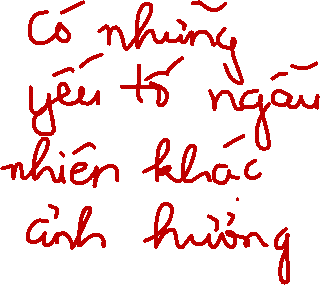 Có những
yếu tố ngẫu
nhiên khác
ảnh hưởng